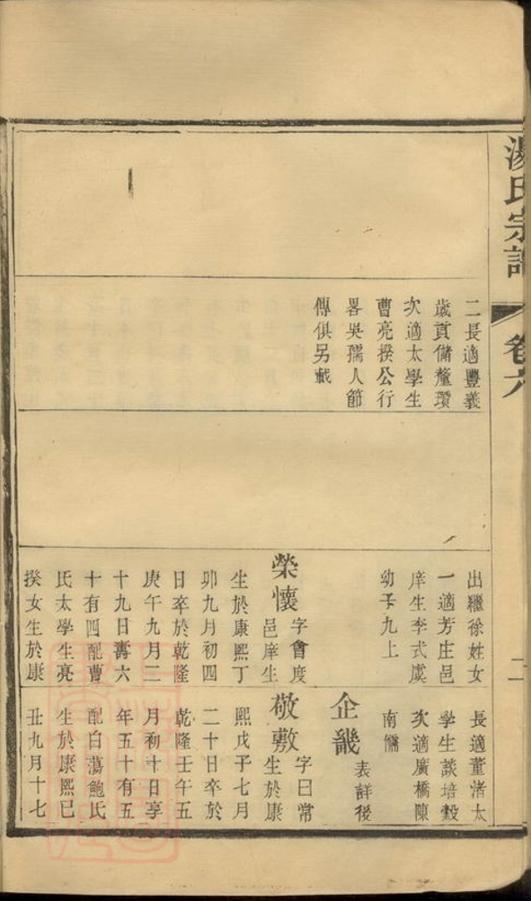 湯氏宗譜
卷六
二長適豐義
歲貢儲釐瓚
次適太學生
曹亮揆公行
畧吳孺人節
傳俱另載
出繼徐姓女
一適芳庄邑
庠生李式虞
幼子九上
榮懷
字會度
邑庠生
生於康熙丁
卯九月初四
日卒於乾隆
庚午九月二
十九日壽六
十有四配曹
氏太學生亮
揆女生於康
長適董渚太
學生談培穀
次適廣橋陳
南僃
企畿
表詳後
敬敷
字曰常
生於康
熙戊子七月
二十日卒於
乾隆壬午五
月初十日享
年五十有五
配白蕩鮑氏
生於康熙己
丑九月十七